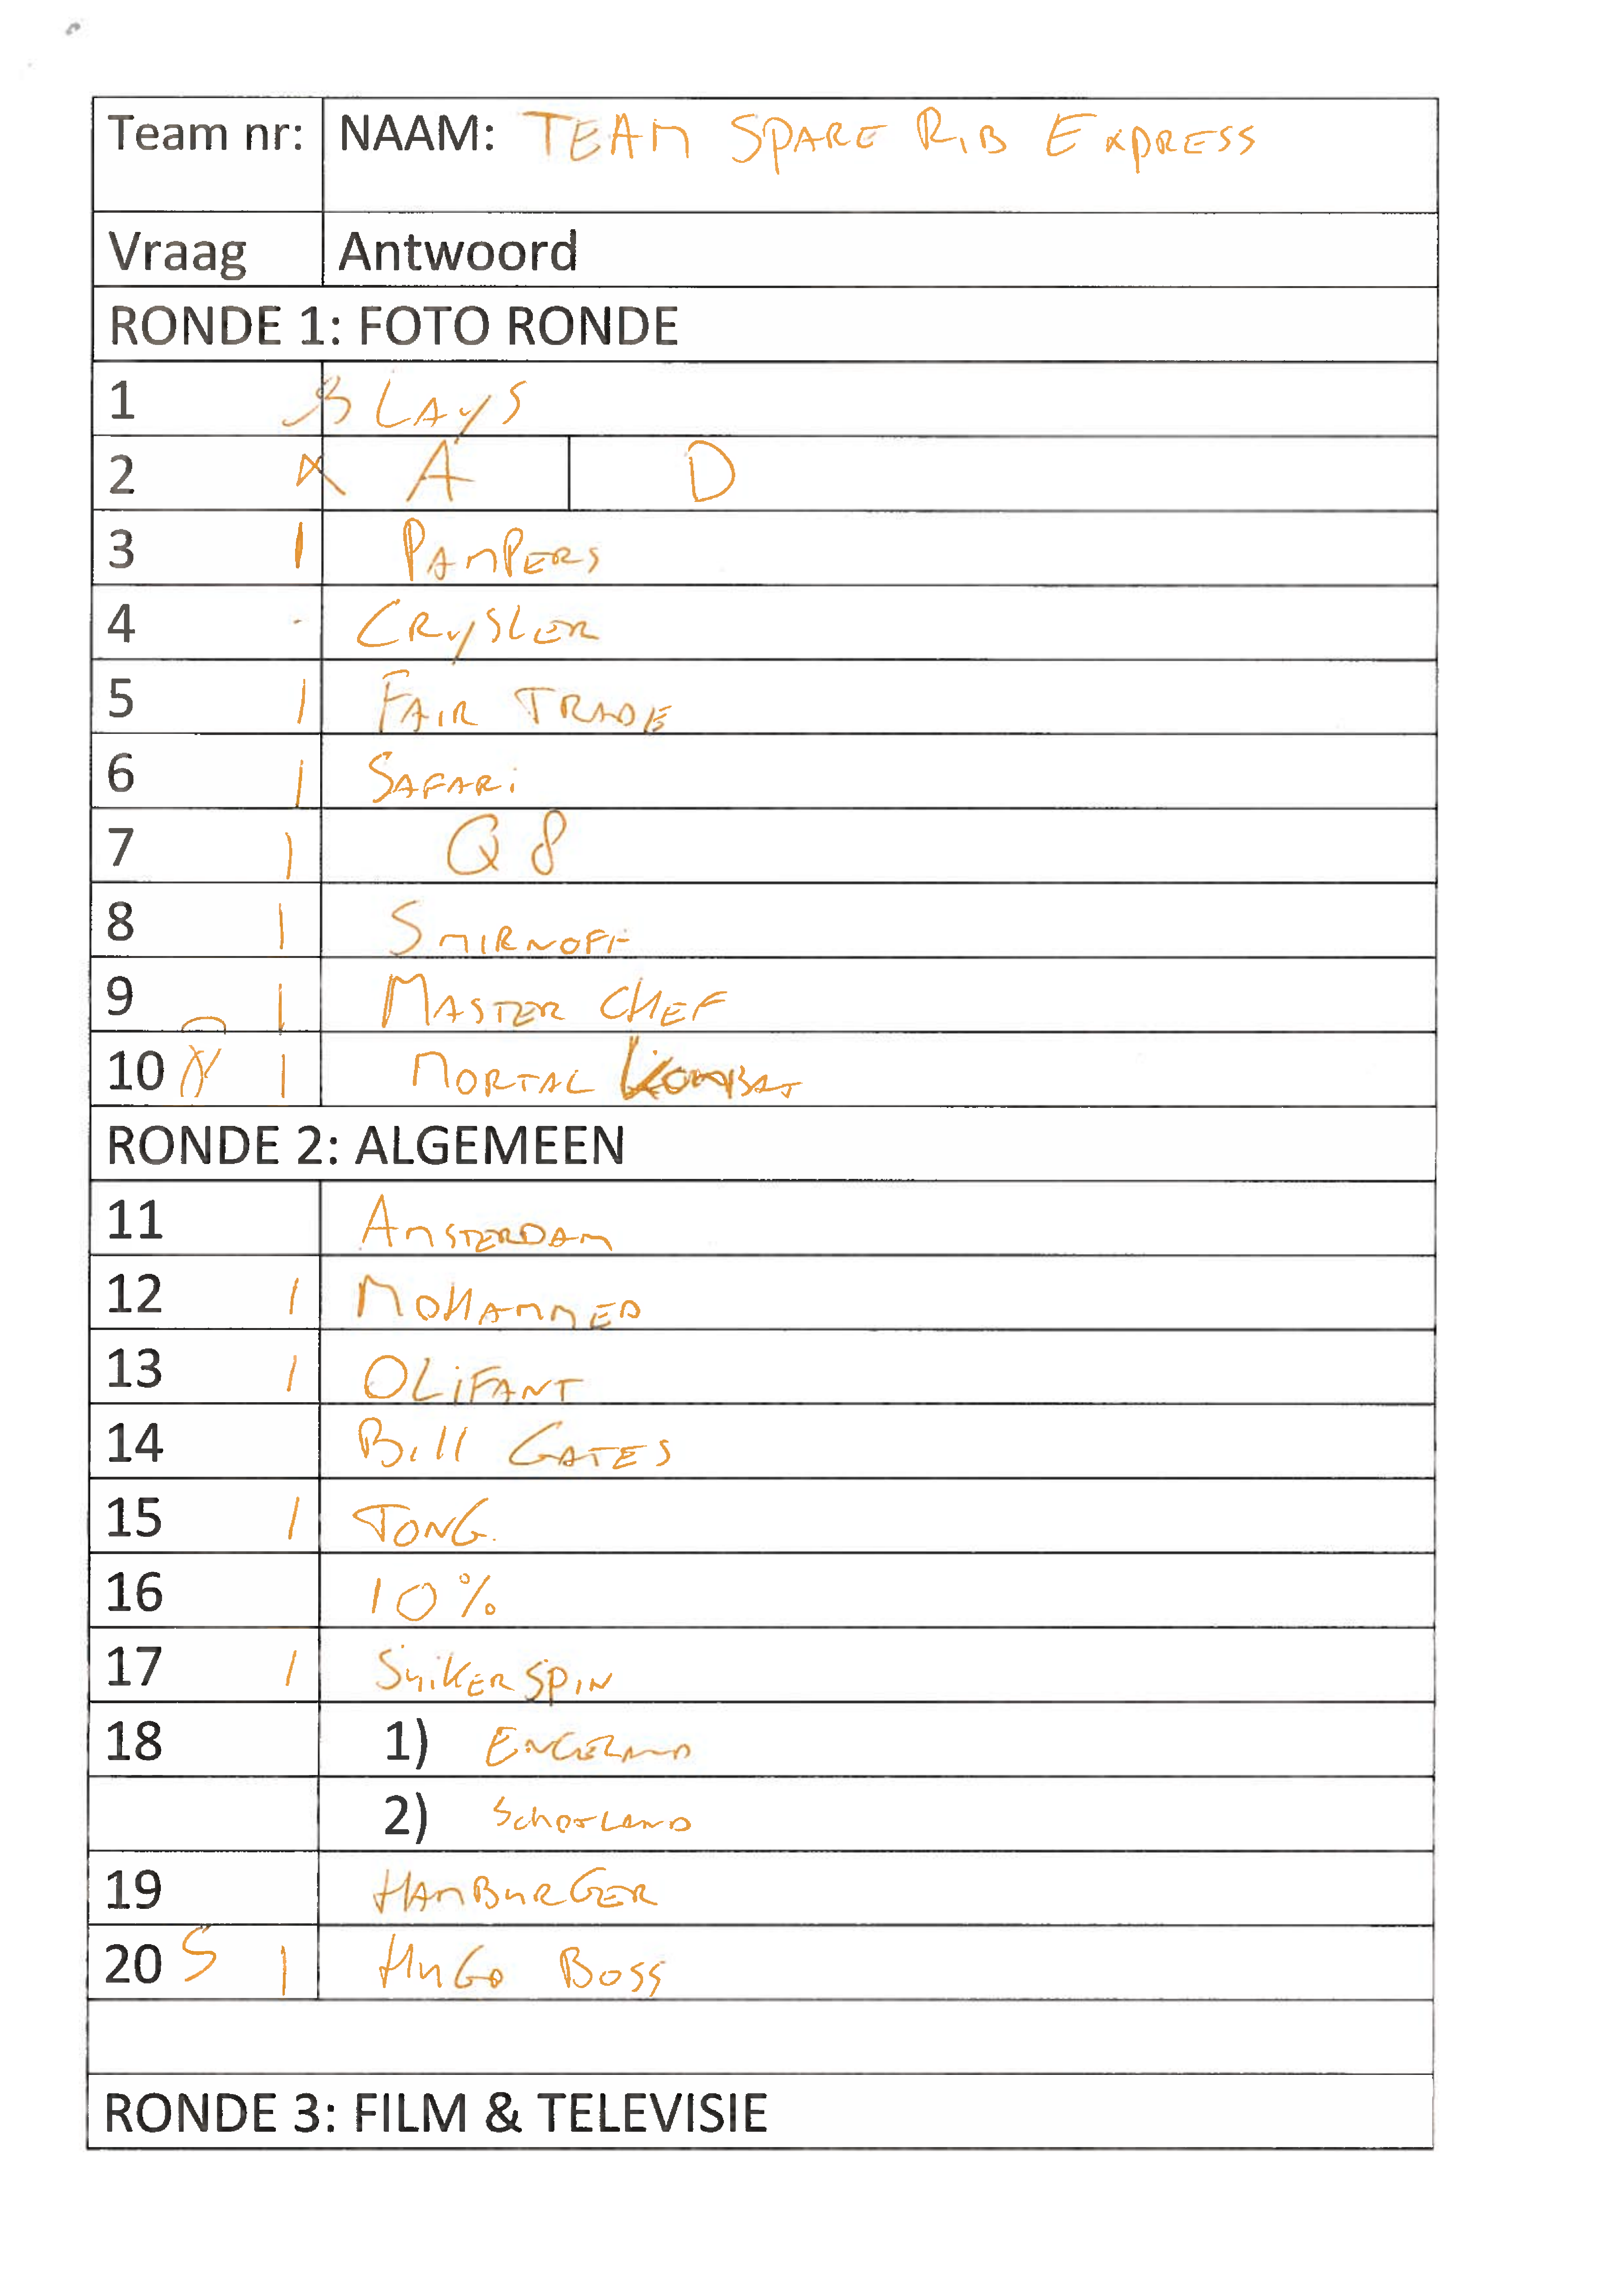 Team nr: NAAM: TEAM SPARE RIB EXPRESS
Vraag Antwoord
RONDE 1: FOTO RONDE
1 LAYS
2 A D
3 1 PAMPERS
4 - CRYSLER
5 1 FAIR TRADE
6 1 SAFARi
7 1 Q8
8 1 SMIRNOFF
9 1 MASTER CHEF
10 1 MORTAL KOMBAT
RONDE 2: ALGEMEEN
11 AMSTERDAM
12 1 MOHAMMED
13 1 OLiFANT
14 Bill GATES
15 1 TONG.
16 10%
17 1 SuiKER SPIN
18 1) ENGELAND
2) SCHOTLAND
19 HAMBURGER
20 5 1 HUGO BOSS
RONDE 3: FILM & TELEVISIE